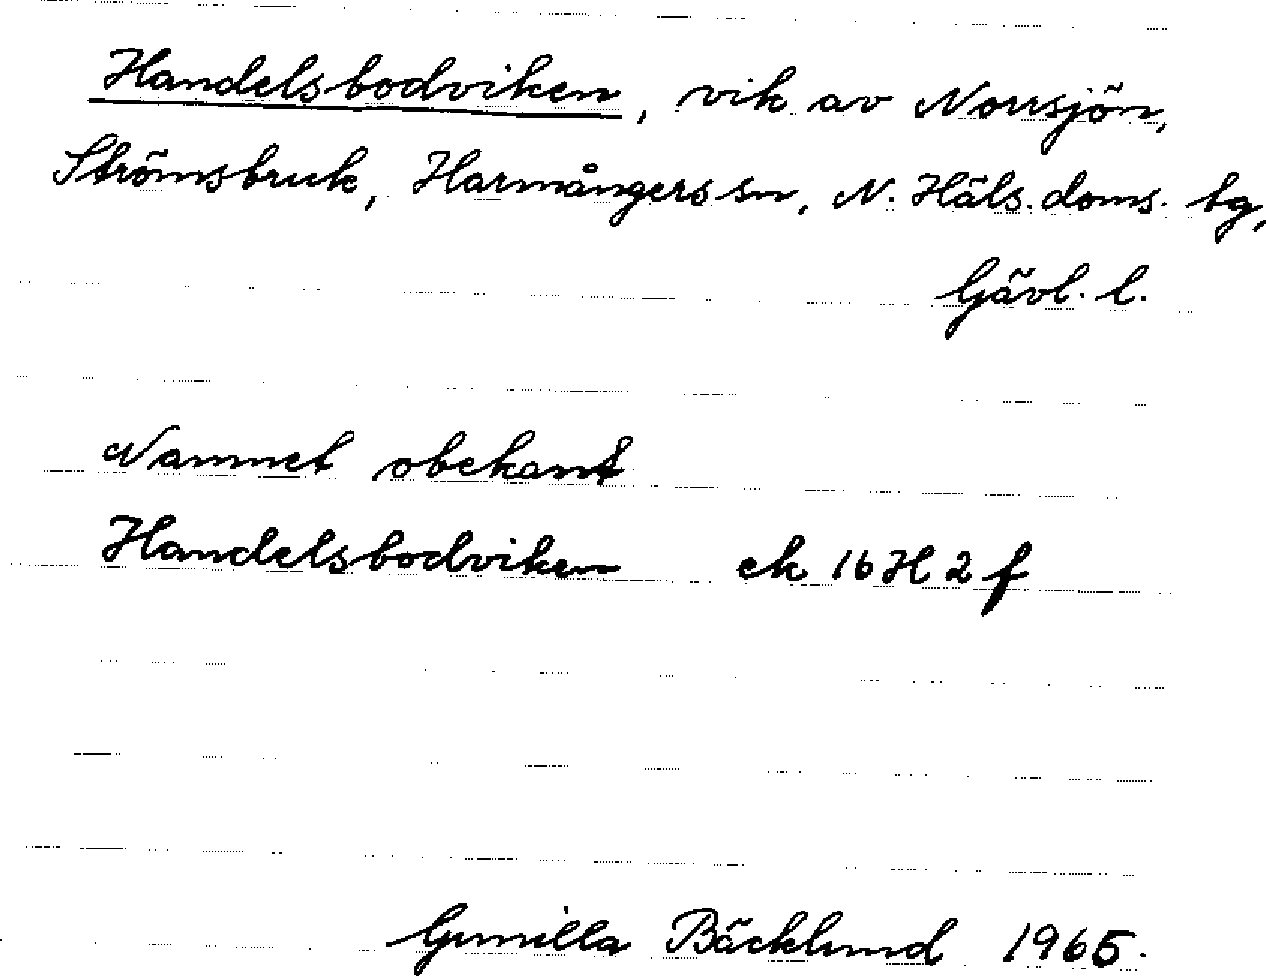 Handelsbodviken, vik av Norrsjön,
Strömsbruk, Harmångers sn, N. Häls. doms. tg,
Gävl. l.
Namnet obekant
Handelsbodviken ek 16 H 2 f
Gunilla Bäcklund 1965.